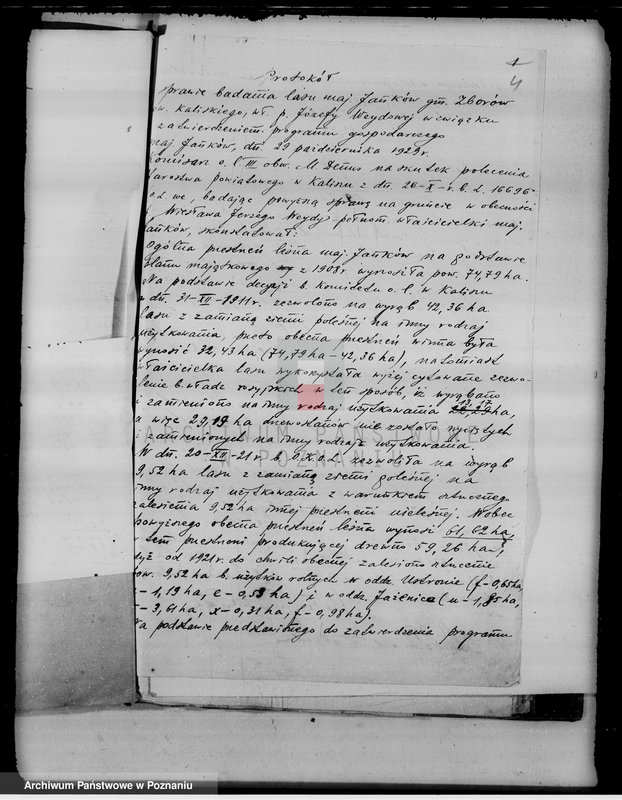 1
4
Protokół
sprawie badania lasu maj. Jańków gm. Zborów
kaliskiego, wł. p. Józefy Weydowej w związku
zatwierdzeniem programu gospodarczego
maj. Jańków, dn. 29 października 1929r.
Komisarz o. l. III obw. M Demus na skutek polecenia
Starostwa powiatowego w Kaliszu z dn. 26-X-r.b. L. 16696
badając powyższą sprawę na gruncie w obecności
Wiesława Jerzego Weydy pełnom. właścicielki maj.
Jańków, skonstatował:
Ogólna przestrzeń leśna maj. Jańków na podstawie
planu majątkowego z 1903r. wynosiła pow. 74,79 ha.
Na podstawie decyzji b. komitetu o. l. w Kaliszu
z dn. 31-XII-1911r. zezwolono na wyrąb 42,36 ha
lasu z zamianą ziemi poleśnej na inny rodzaj
użytkowania, przeto obecna przestrzeń winna była
wynosić 32,43 ha (74,79 ha - 42,36 ha), natomiast
właścicielka lasu wykorzystała wyżej cytowane zezwo-
lenie b. władz rosyjskich w ten sposób, iż wyrąbano
i zamieniono na inny rodzaj użytkowania 13,17 ha,
a więc 29,19 ha drzewostanów nie zostało wyciętych
i zamienionych na inny rodzaj użytkowania.
W dn. 20-XII-21 r. b. O.K.O.L. zezwoliła na wyrąb
9,52 ha lasu z zamianą ziemi poleśnej na
inny rodzaj użytkowania z warunkiem sztucznego
zalesienia 9,52 ha innej przestrzeni nieleśnej. Wobec
powyższego obecna przestrzeń leśna wynosi 61,62 ha,
w tem przestrzeni produkującej drewno 59,26 ha,
gdyż od 1921r. do chwili obecnej zalesiono sztucznie
pow. 9,52 ha b. użytków rolnych w oddz. Ustronie (f-0,65 ha,
- 1,19 ha, c - 0,53 ha) i w oddz. Jaźenice (n - 1,85 ha,
- 3,61 ha, x - 0,31 ha, f - 0,98 ha).
Na podstawie przedstawionego do zatwierdzenia programu
ARCHIWUM PAŃSTWOWE
W POZNANIU
Archiwum Państwowe w Poznaniu